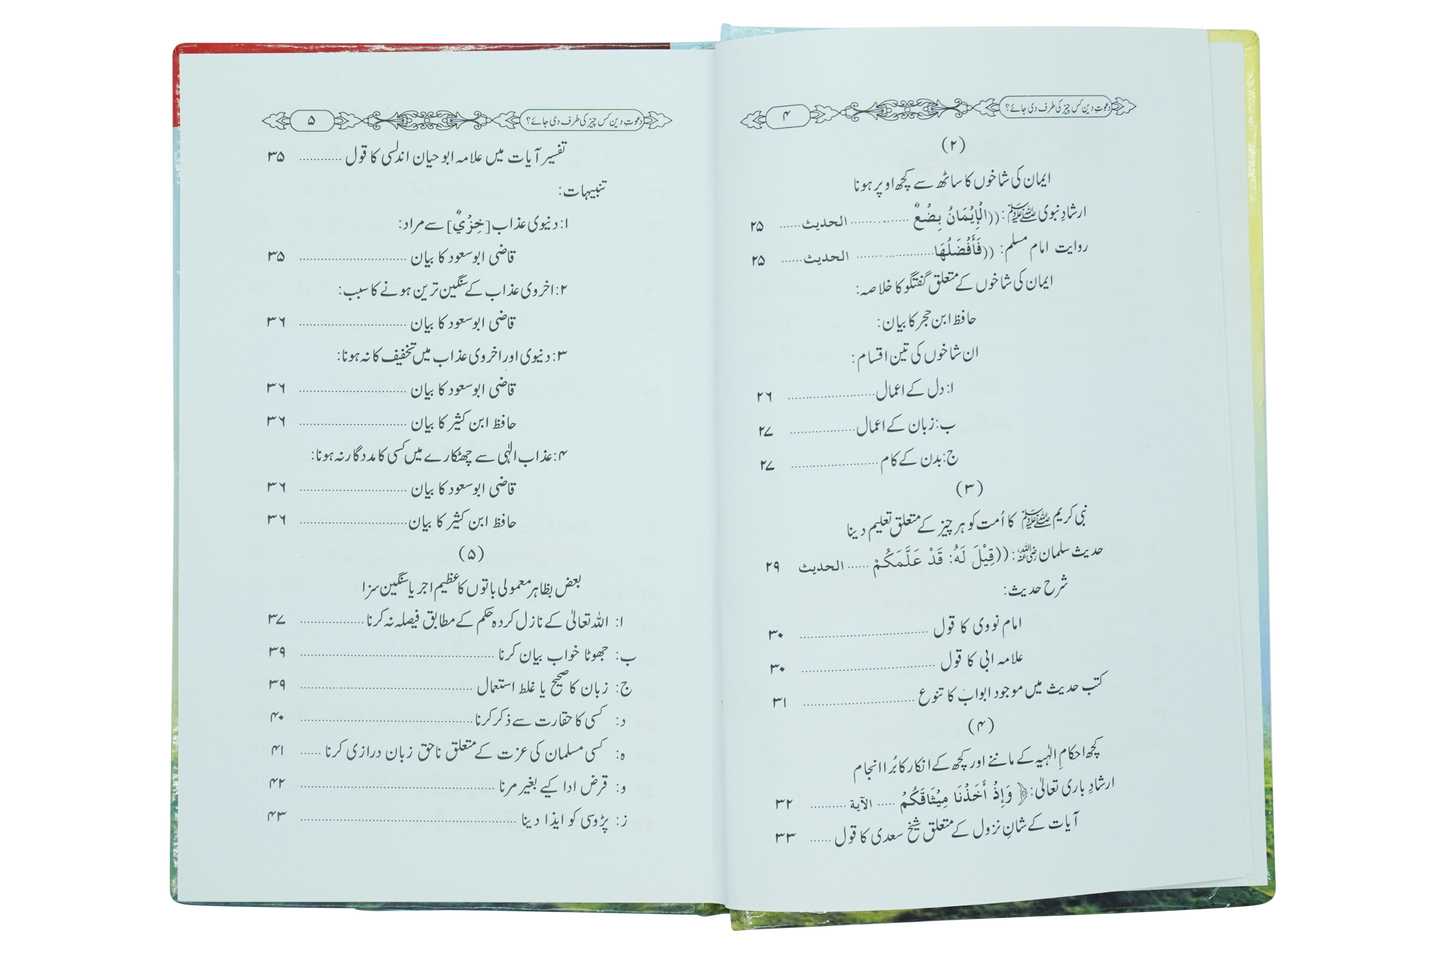 دعوتِ دین کس چیز کی طرف دی جائے؟ ۴
(۲)
ایمان کی شاخوں کا ساٹھ سے کچھ اوپر ہونا
ارشادِ نبوی ﷺ: ((الْإِيْمَانُ بِضْعٌ .............. الحدیث...... ۲۵
روایت امام مسلم: ((فَأَفْضَلُهَا .............. الحدیث...... ۲۵
ایمان کی شاخوں کے متعلق گفتگو کا خلاصہ:
حافظ ابن حجر کا بیان:
ان شاخوں کی تین اقسام:
ا: دل کے اعمال ...................... ۲۶
ب: زبان کے اعمال ................ ۲۷
ج: بدن کے کام ...................... ۲۷
(۳)
نبی کریم ﷺ کا اُمت کو ہر چیز کے متعلق تعلیم دینا
حدیث سلمان رضی اللہ عنہ: ((قِيْلَ لَهُ: قَدْ عَلَّمَكُمْ ...... الحدیث ۲۹
شرح حدیث:
امام نووی کا قول ................................ ۳۰
علامہ ابی کا قول ................................ ۳۰
کتب حدیث میں موجود ابواب کا تنوع ............................ ۳۱
(۴)
کچھ احکامِ الٰہیہ کے ماننے اور کچھ کے انکار کا بُرا انجام
ارشادِ باری تعالیٰ: ﴿ وَإِذْ أَخَذْنَا مِيْثَاقَكُمْ ..... الآية .......... ۳۲
آیات کے شانِ نزول کے متعلق شیخ سعدی کا قول ...... ۳۳
دعوتِ دین کس چیز کی طرف دی جائے؟ ۵
تفسیر آیات میں علامہ ابو حیان اندلسی کا قول ........... ۳۵
تنبیہات:
۱: دنیوی عذاب [خِزْيٌ] سے مراد:
قاضی ابوسعود کا بیان ............................ ۳۵
۲: اخروی عذاب کے سنگین ترین ہونے کا سبب:
قاضی ابوسعود کا بیان ............................ ۳۶
۳: دنیوی اور اخروی عذاب میں تخفیف کا نہ ہونا:
قاضی ابوسعود کا بیان ............................ ۳۶
حافظ ابن کثیر کا بیان ............................ ۳۶
۴: عذاب الٰہی سے چھٹکارے میں کسی کا مددگار نہ ہونا:
قاضی ابوسعود کا بیان ............................ ۳۶
حافظ ابن کثیر کا بیان ............................ ۳۶
(۵)
بعض بظاہر معمولی باتوں کا عظیم اجر یا سنگین سزا
ا: اللہ تعالیٰ کے نازل کردہ حکم کے مطابق فیصلہ نہ کرنا ................ ۳۷
ب: جھوٹا خواب بیان کرنا .................................................. ۳۹
ج: زبان کا صحیح یا غلط استعمال ............................................ ۳۹
د: کسی کا حقارت سے ذکر کرنا ............................................ ۴۰
ہ: کسی مسلمان کی عزت کے متعلق ناحق زبان درازی کرنا ...... ۴۱
و: قرض ادا کیے بغیر مرنا .................................................. ۴۲
ز: پڑوسی کو ایذا دینا ........................................................ ۴۳